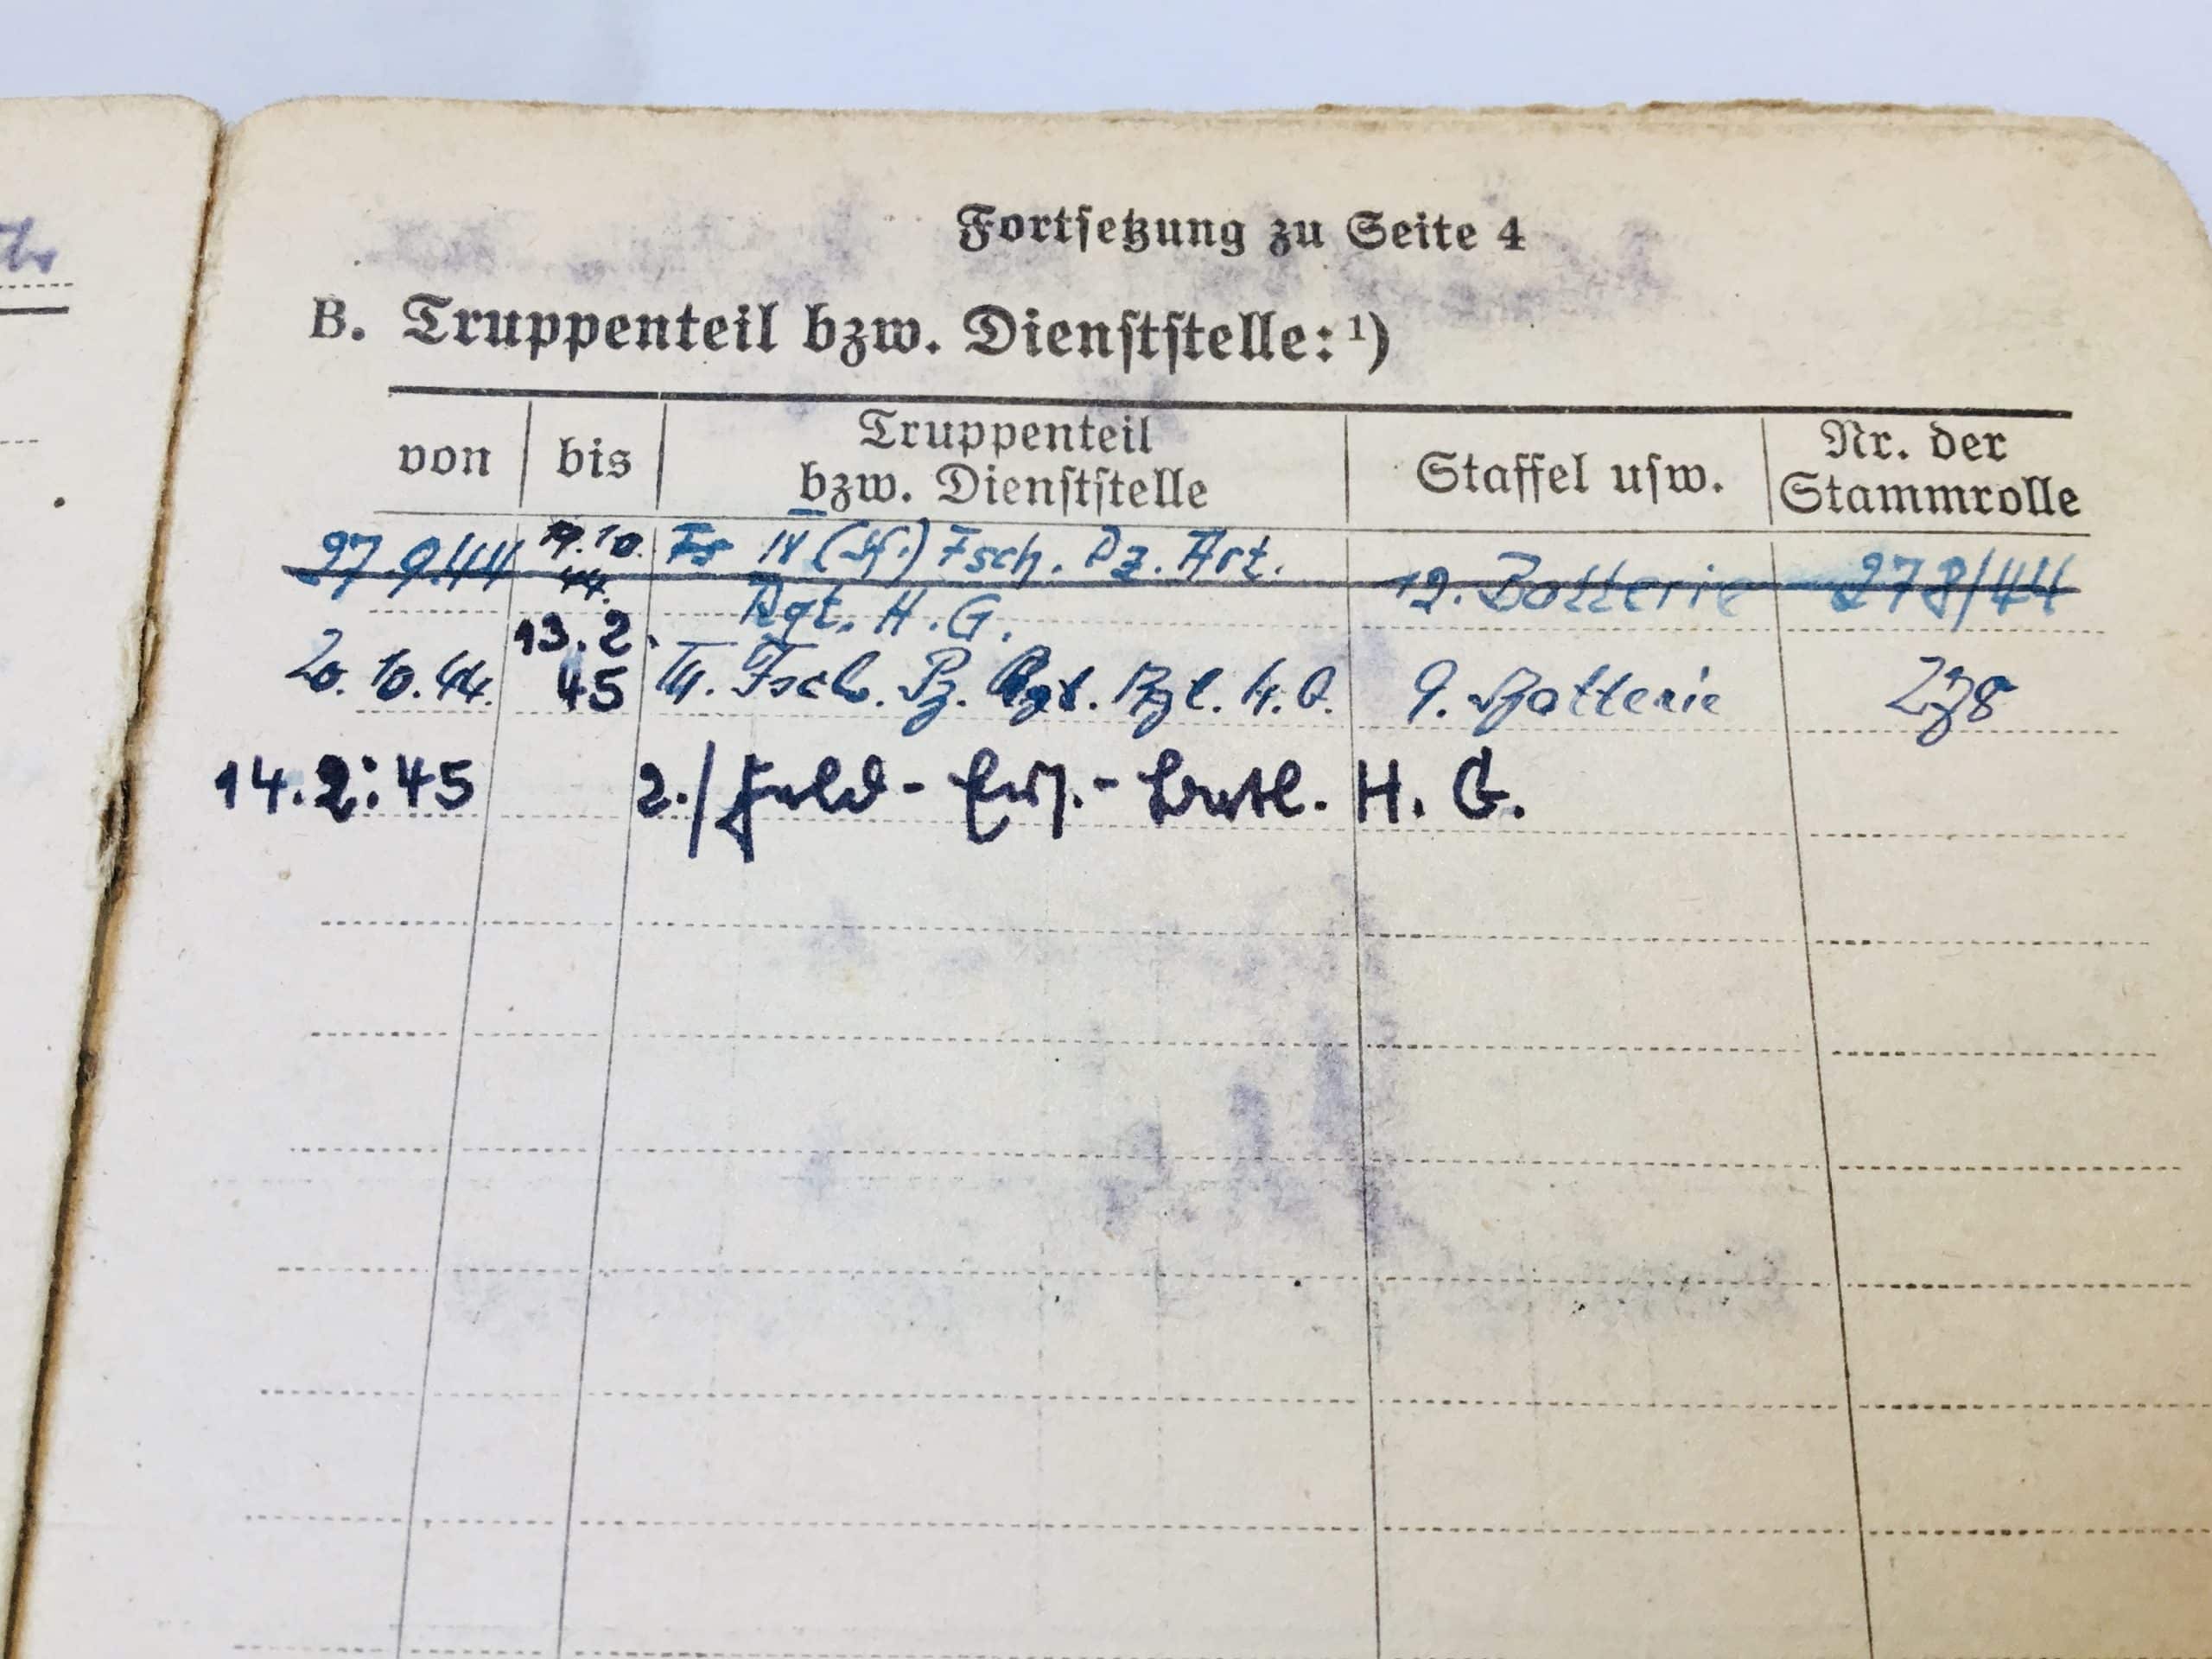 Fortsetzung zu Seite 4
B. Truppenteil bzw. Dienststelle: ¹)
von bis Truppenteil bzw. Dienststelle Staffel usw. Nr. der Stammrolle
27.9.44 19.10. 44. IV (Sf.) Fsch. Pz. Art. 12. Batterie 278/44
Rgt. H. G.
20. 10. 44. 13.2. 45 III. Fsch. Pz. Rgt. H. G. 9. Batterie 278
14.2.45 2./Feld-Ers.-Batl. H. G.